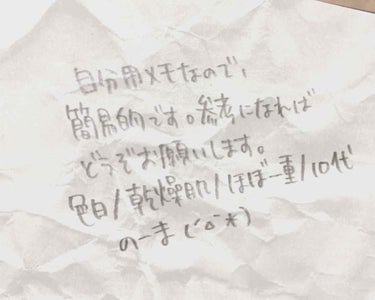 自分用メモなので、
簡易的です。参考になれば
どうぞお願いします。
色白/乾燥肌/ほぼ一重/10代
のーま(´ฅ`*)